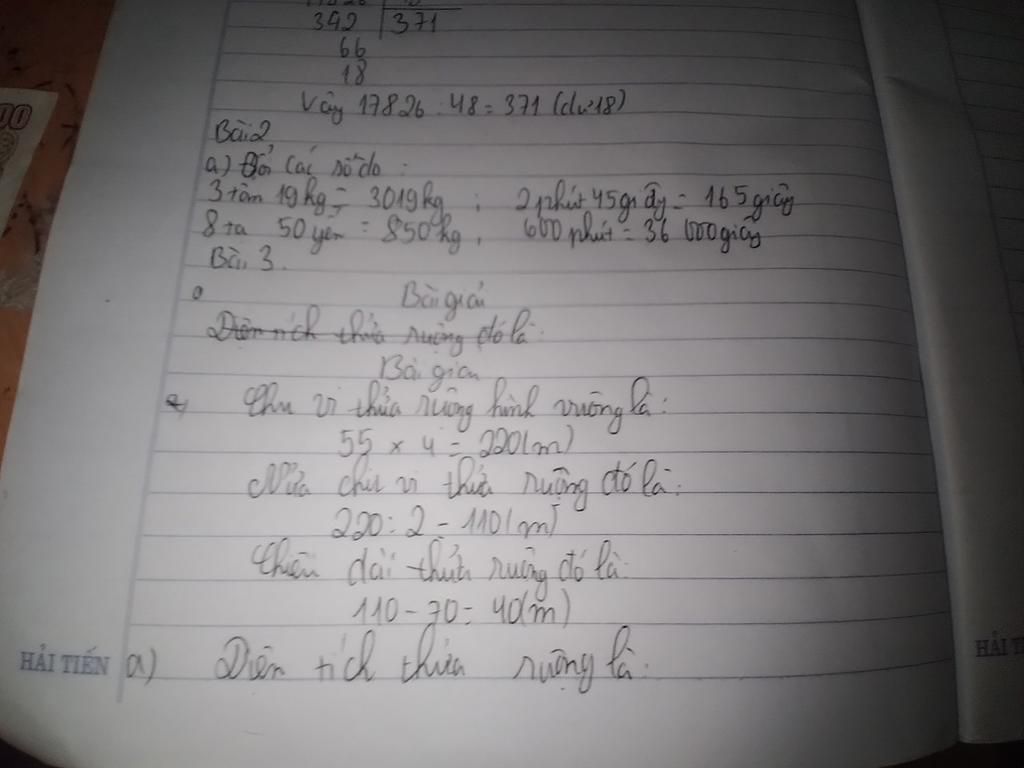 392 371
66
18
Vậy 17826 : 48 = 371 (dư 18)
Bài 2
a) Đổi các số đo :
3 tấn 19 kg = 3019 kg ; 2 phút 45 giây = 165 giây
8 tạ 50 yến = 850 kg, 600 phút = 36 000 giây
Bài 3.
Bài giải
Diện tích thửa ruộng đó là:
Bài giải
Chu vi thửa ruộng hình vuông là:
55 × 4 = 220 (m)
Nửa chu vi thửa ruộng đó là:
220 : 2 = 110 (m)
Chiều dài thửa ruộng đó là:
110 - 70 = 40 (m)
HẢI TIẾN a) Diện tích thửa ruộng là:
HẢI TI
00